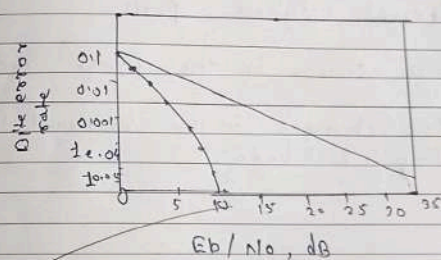 Bite error rate
0.1
0.01
0.001
1e.04
10.05
0 5 10 15 20 25 30 35
Eb/No, dB